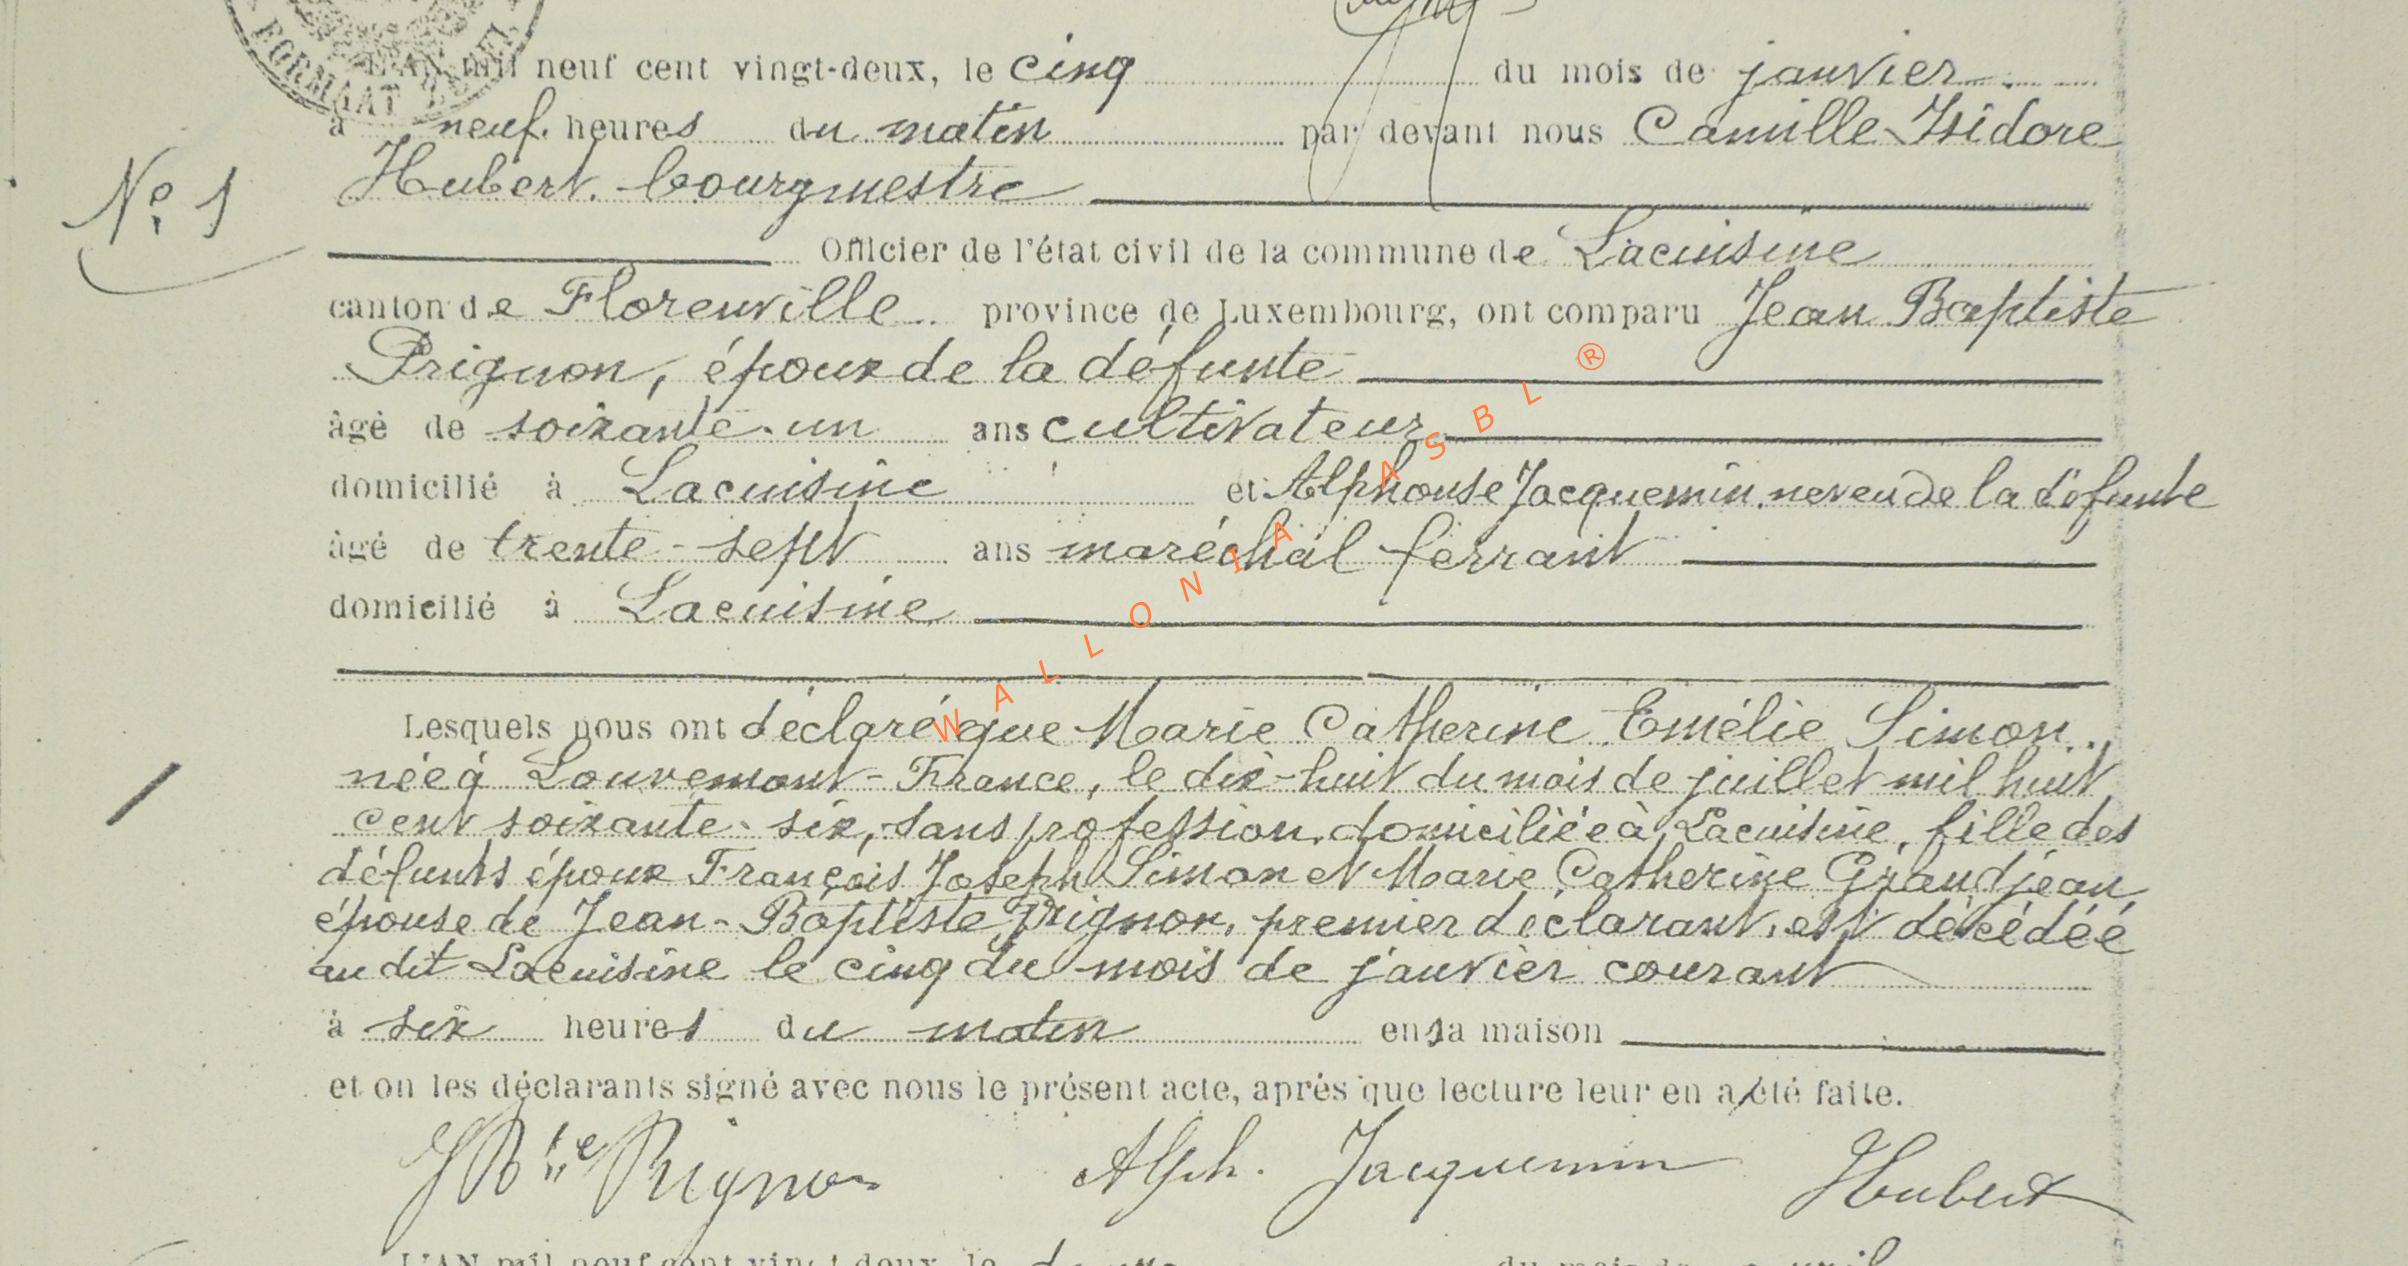 FORMAAT
L'AN mil neuf cent vingt-deux, le cinq du mois de janvier
à neuf heures du matin par devant nous Camille Isidore
Hubert, bourgmestre
Nº 1
Officier de l'état civil de la commune de Lacuisine
canton de Florenville province de Luxembourg, ont comparu Jean Baptiste
Prignon, époux de la défunte
âgé de soixante-un ans cultivateur
domicilié à Lacuisine et Alphonse Jacquemin, neveu de la défunte
âgé de trente-sept ans maréchal ferrant
domicilié à Lacuisine
WALLONIA ASBL ®
Lesquels nous ont déclaré que Marie Catherine Emélie Simon,
née à Louvemont-France, le dix-huit du mois de juillet mil huit
cent soixante-six, sans profession, domiciliée à Lacuisine, fille des
défunts époux François Joseph Simon et Marie Catherine Grandjean,
épouse de Jean-Baptiste Prignon, premier déclarant, est décédée
au dit Lacuisine le cinq du mois de janvier courant
à six heures du matin en sa maison
et on les déclarants signé avec nous le présent acte, après que lecture leur en a été faite.
J Bte Prignon Alph. Jacquemin Hubert
L'AN mil neuf cent vingt-deux, le du mois de avril